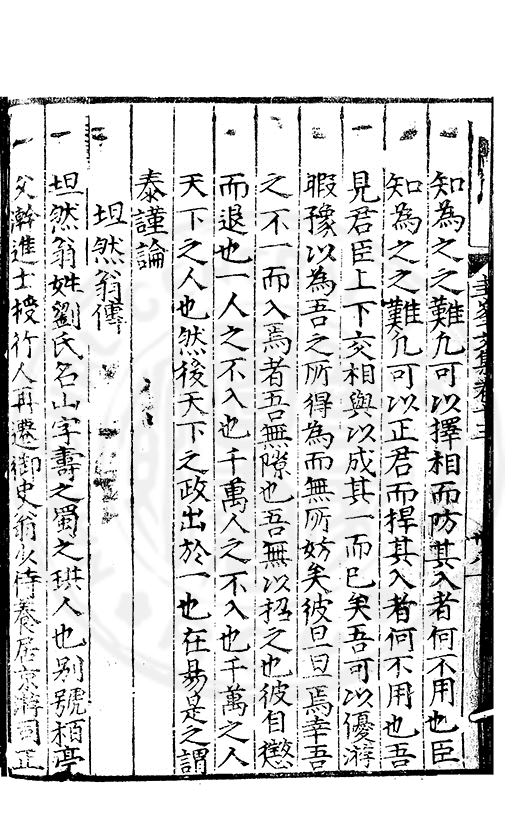 知為之之難凢可以擇相而防其入者何不用也臣
知為之之難凢可以正君而捍其入者何不用也吾
見君臣上下交相與以成其一而已矣吾可以優游
暇豫以為吾之所得為而無所妨矣彼旦旦焉幸吾
之不一而入焉者吾無隙也吾無以招之也彼自懲
而退也一人之不入也千萬人之不入也千萬之人
天下之人也然後天下之政出於一也在易是之謂
泰謹論
坦然翁傳
坦然翁姓劉氏名山字壽之蜀之珙人也別號栢亭
父瀚進士授行人再遷御史翁少侍養居京游司正